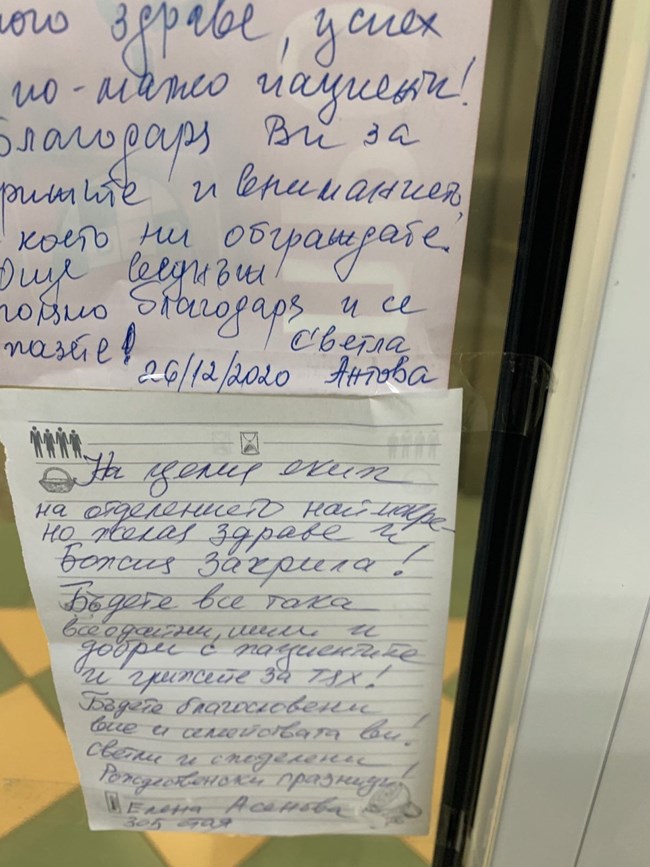 здраве, успех
и по-малко пациенти!
Благодаря Ви за
и вниманието,
с което ни обграждате.
Още веднъж
благодаря и се
пазете! Светла
26/12/2020 Антова
На целия екип
на отделението най-искре-
но желая здраве и
Божия закрила!
Бъдете все така
всеотдайни, мили и
добри с пациентите
и грижете за тях!
Бъдете благословени
вие и семействата ви!
Светли и споделени
Рождественски празници!
Елена Асенова
305 стая